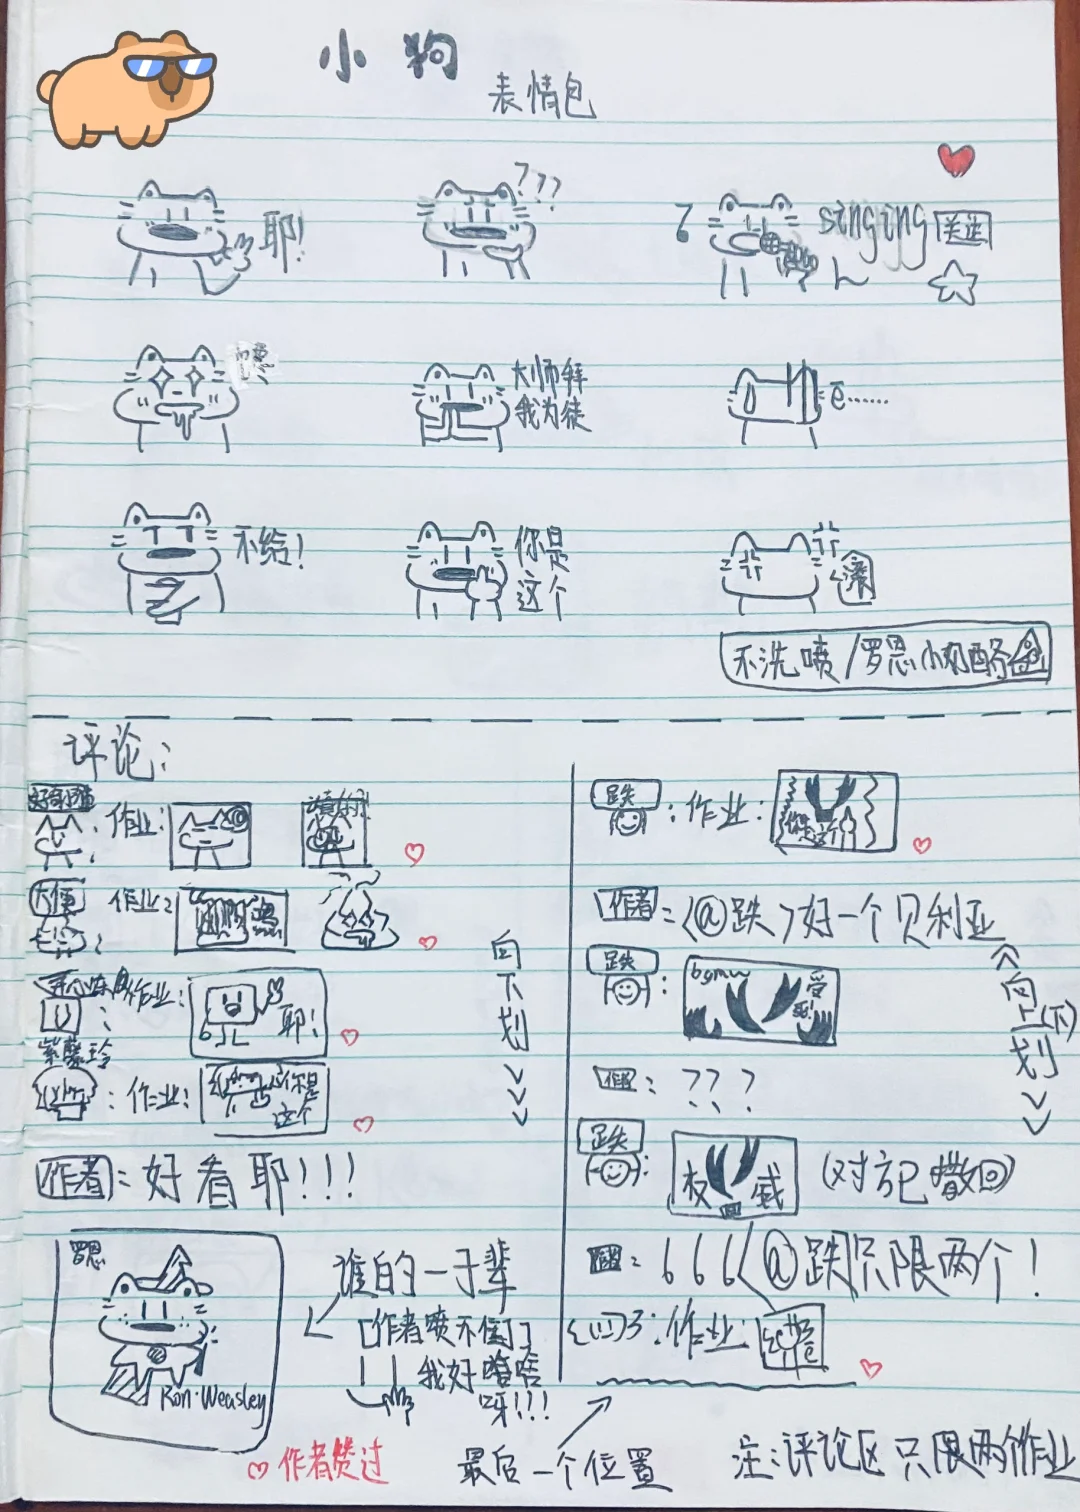 小狗
表情包
耶！
？？？
singing
馋
大师拜
我为徒
e……
不给！
你是
这个
滚
不洗喷/罗恩小奶酪
评论：
作业：
大便
作业：
作业：
耶！
紫藤玲
作业：
你是
这个
作者：好看耶！！！
向下划
罗恩
Ron·Weasley
谁的一子辈
[作者喷不倒]
我好噜啥
呀！！！
作者赞过
跌：作业：
作者：(@跌)好一个贝利亚
跌：
bgmw
受
：？？？
跌：
权威
(对方已撤回)
：666(@跌只限两个！
作业：
向上(下)划
最后一个位置
注：评论区只限两个作业